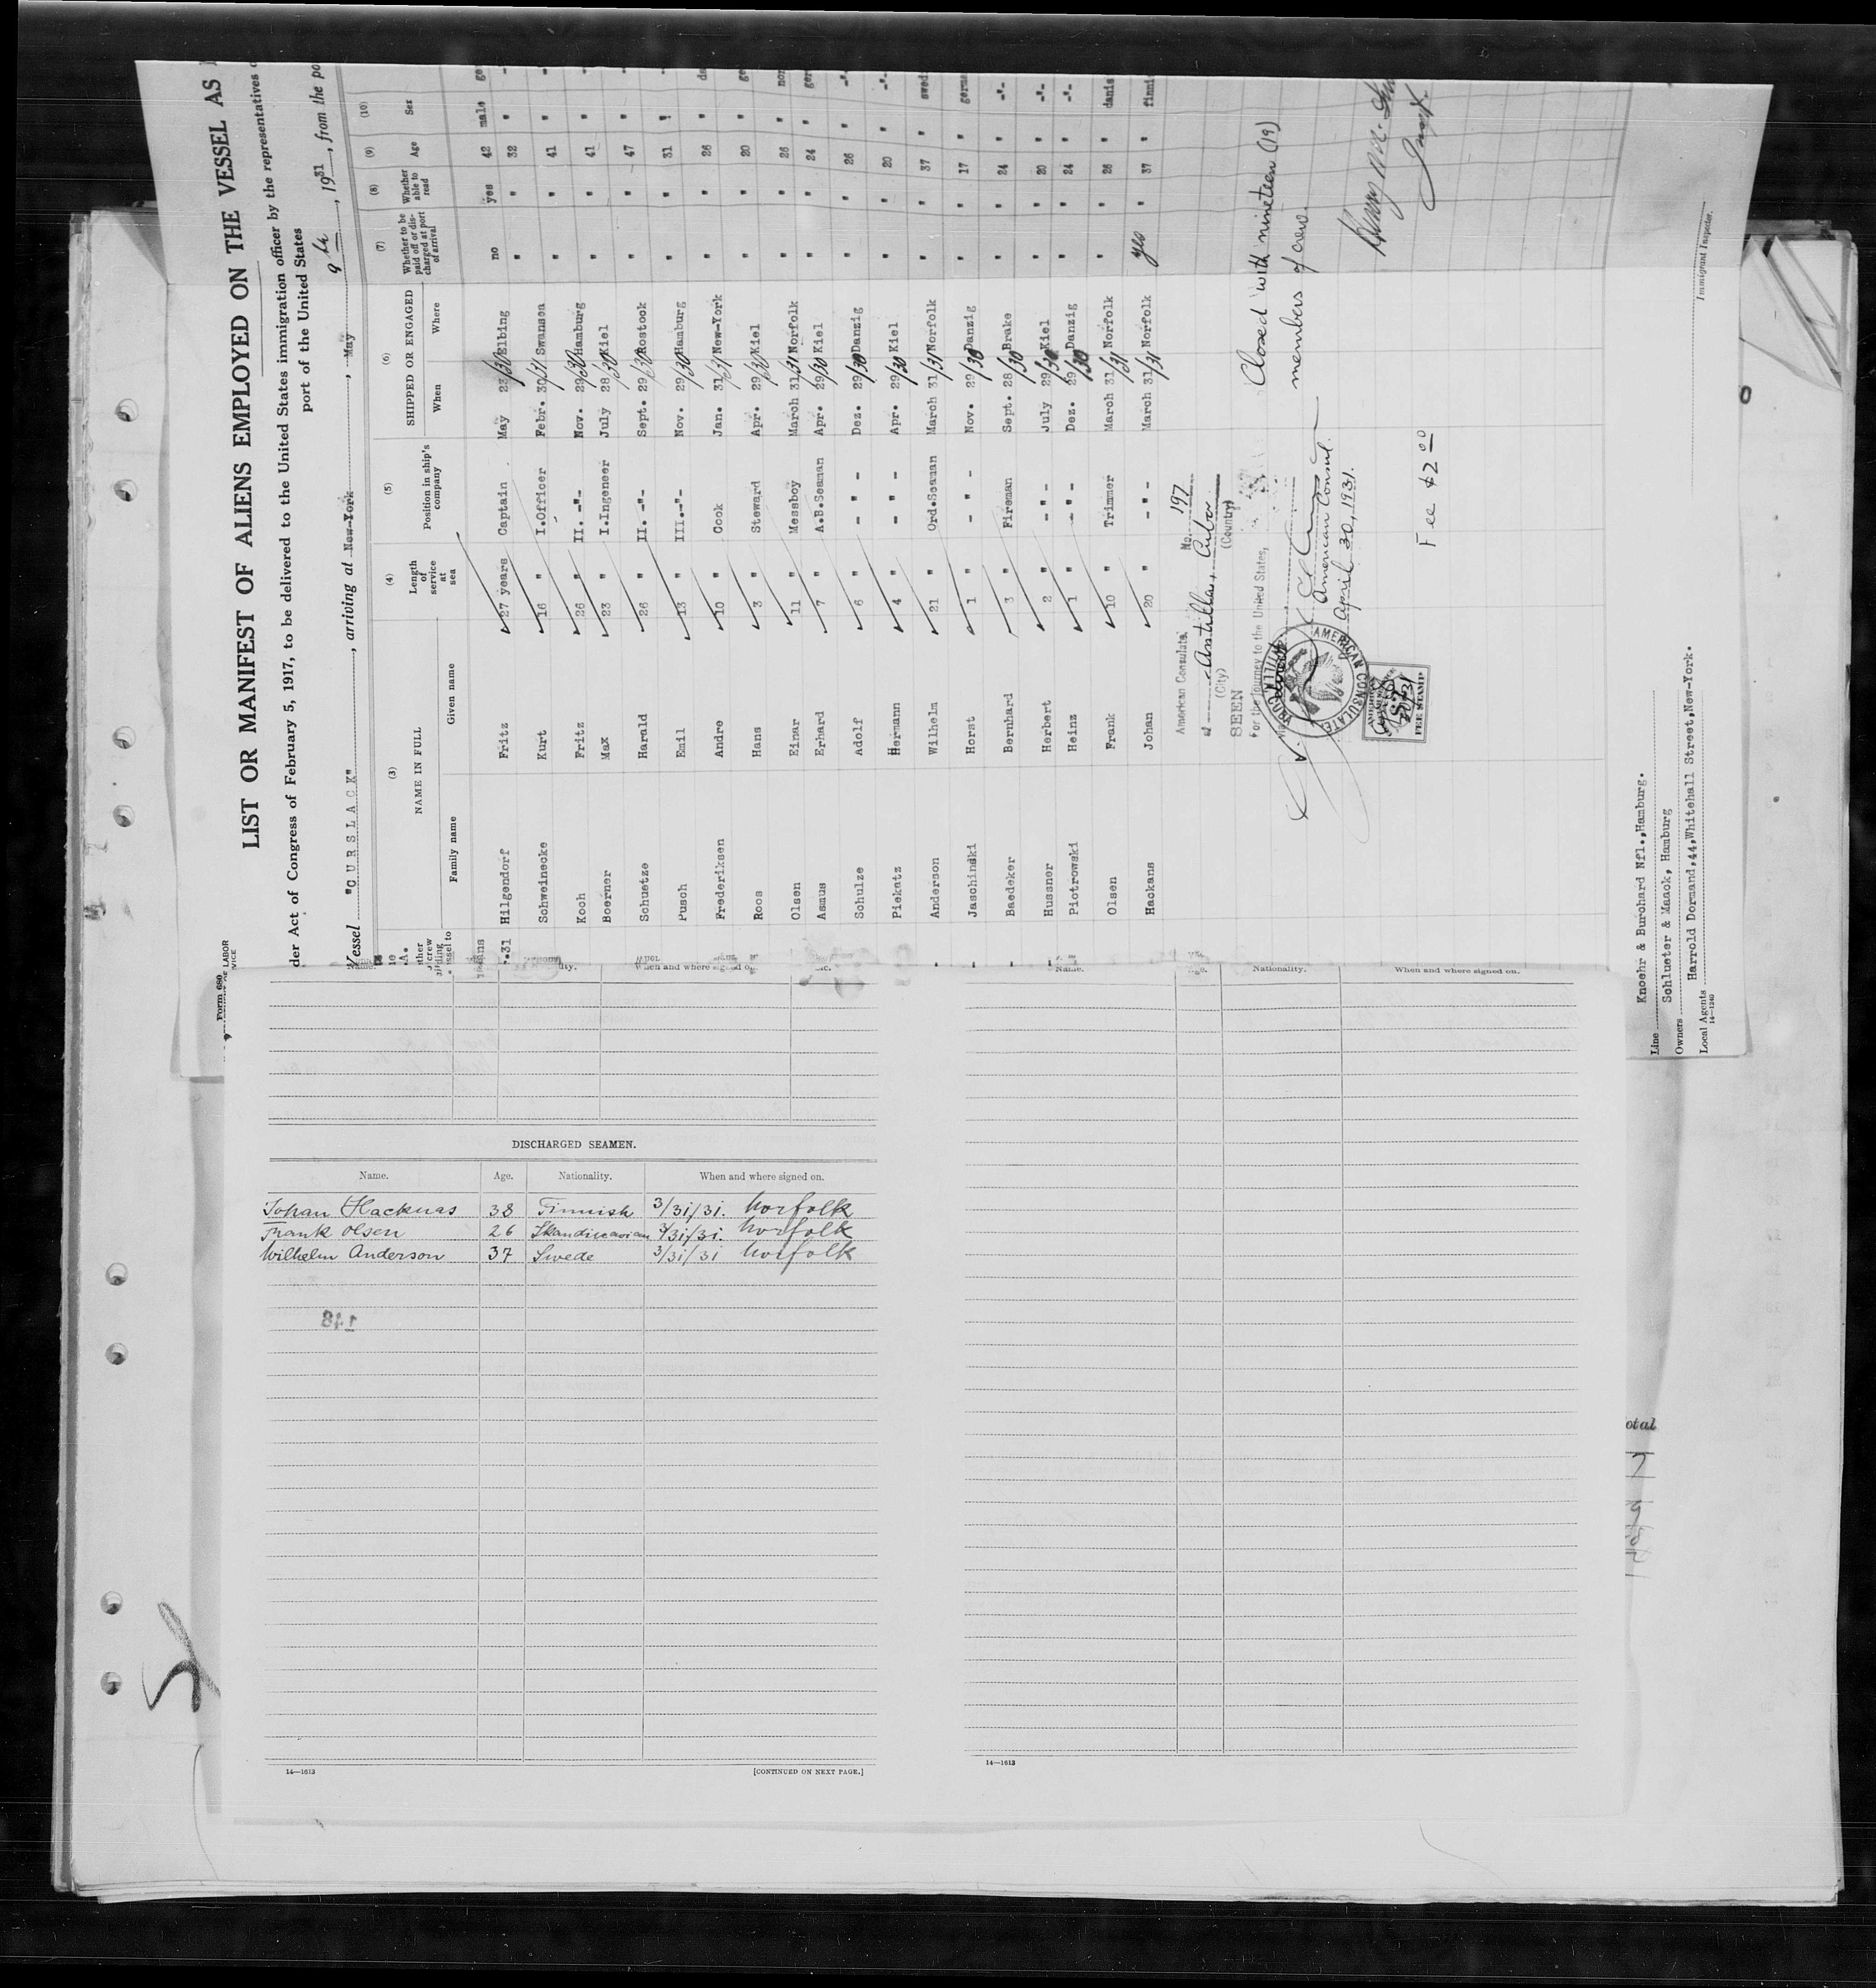 Form 680
LIST OR MANIFEST OF ALIENS EMPLOYED ON THE VESSEL AS
der Act of Congress of February 5, 1917, to be delivered to the United States immigration officer by the representatives
port of the United States
Vessel "CURSLACK", arriving at New-York, May 9th, 1931, from the po
(3) (4) (5) (6) (7) (8) (9) (10)
NAME IN FULL Length of service at sea Position in ship's company SHIPPED OR ENGAGED Whether to be paid off or discharged at port of arrival Whether able to read Age Sex
Family name Given name When Where
Hilgendorf Fritz 27 years Captain May 23/30 Elbing no yes 42 male ge
Schweinecke Kurt 16 " I.Officer Febr. 30/31 Swansea " " 32 "
Koch Fritz 26 " II. -"- Nov. 29/30 Hamburg " " 41 "
Boerner Max 23 " I.Ingeneer July 28/30 Kiel " " 41 "
Schuetze Harald 26 " II. -"- Sept. 29/30 Rostock " " 47 "
Pusch Emil 13 " III.-"- Nov. 29/30 Hamburg " " 31 "
Frederiksen Andre 10 " Cook Jan. 31/31 New-York " " 26 " da
Roos Hans 3 " Steward Apr. 29/30 Kiel " " 20 " ge
Olsen Einar 11 " Messboy March 31/31 Norfolk " " 26 " nor
Asmus Erhard 7 " A.B.Seaman Apr. 29/30 Kiel " " 24 " ger
Schulze Adolf 6 " - " - Dez. 29/30 Danzig " " 26 " -"-
Piekatz Hermann 4 " - " - Apr. 29/30 Kiel " " 20 " -"-
Anderson Wilhelm 21 " Ord.Seaman March 31/31 Norfolk " " 37 " swed
Jaschinski Horst 1 " - " - Nov. 29/30 Danzig " " 17 " germ
Baedeker Bernhard 3 " Fireman Sept. 28/30 Brake " " 24 " -"-
Hussner Herbert 2 " - " - July 29/30 Kiel " " 20 " -"-
Piotrowski Heinz 1 " - " - Dez. 29/30 Danzig " " 24 " -"-
Olsen Frank 10 " Trimmer March 31/31 Norfolk " " 26 " danis
Hackans Johan 20 " - " - March 31/31 Norfolk yes " 37 " finni
American Consulate, No. 197
at Antilla, Cuba
(City) (Country)
SEEN
For the journey to the United States,
Closed with nineteen (19)
members of crew.
American Consul.
April 30, 1931.
AMERICAN CONSULATE
FEE STAMP
Fee $2.00
Line Knoehr & Burchard Nfl.,Hamburg.
Owners Schlueter & Maack, Hamburg
Local Agents Harrold Dormand,44,Whitehall Street,New-York.
14-1240
Immigrant Inspector.
Name. When and where signed on.
Name. Nationality. When and where signed on.
DISCHARGED SEAMEN.
Name. Age. Nationality. When and where signed on.
Johan Hacknas 38 Finnish 3/31/31. Norfolk
Frank Olsen 26 Skandinavian 3/31/31. Norfolk
Wilhelm Anderson 37 Swede 3/31/31 Norfolk
14—1613 [CONTINUED ON NEXT PAGE.]
14—1613
otal